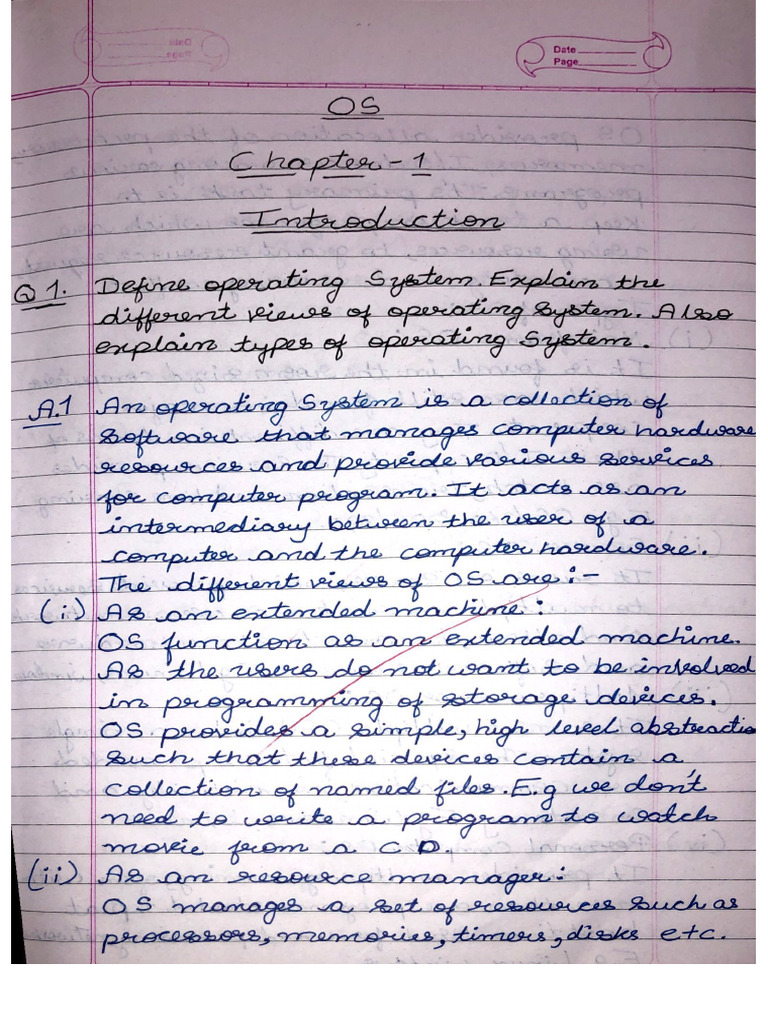 Date
Page
OS
Chapter - 1
Introduction
Q1. Define operating System. Explain the
different views of operating system. Also
explain types of operating System.
A.1 An operating System is a collection of
software that manages computer hardware
resources and provide various services
for computer program. It acts as an
intermediary between the user of a
computer and the computer hardware.
The different views of OS are :-
(i) As an extended machine :
OS function as an extended machine.
As the users do not want to be involved
in programming of storage devices.
OS provides a simple, high level abstractio
such that these devices contain a
collection of named files. E.g we don't
need to write a program to watch
movie from a CD.
(ii) As an resource manager :
OS manages a set of resources such as
processors, memories, timers, disks etc.